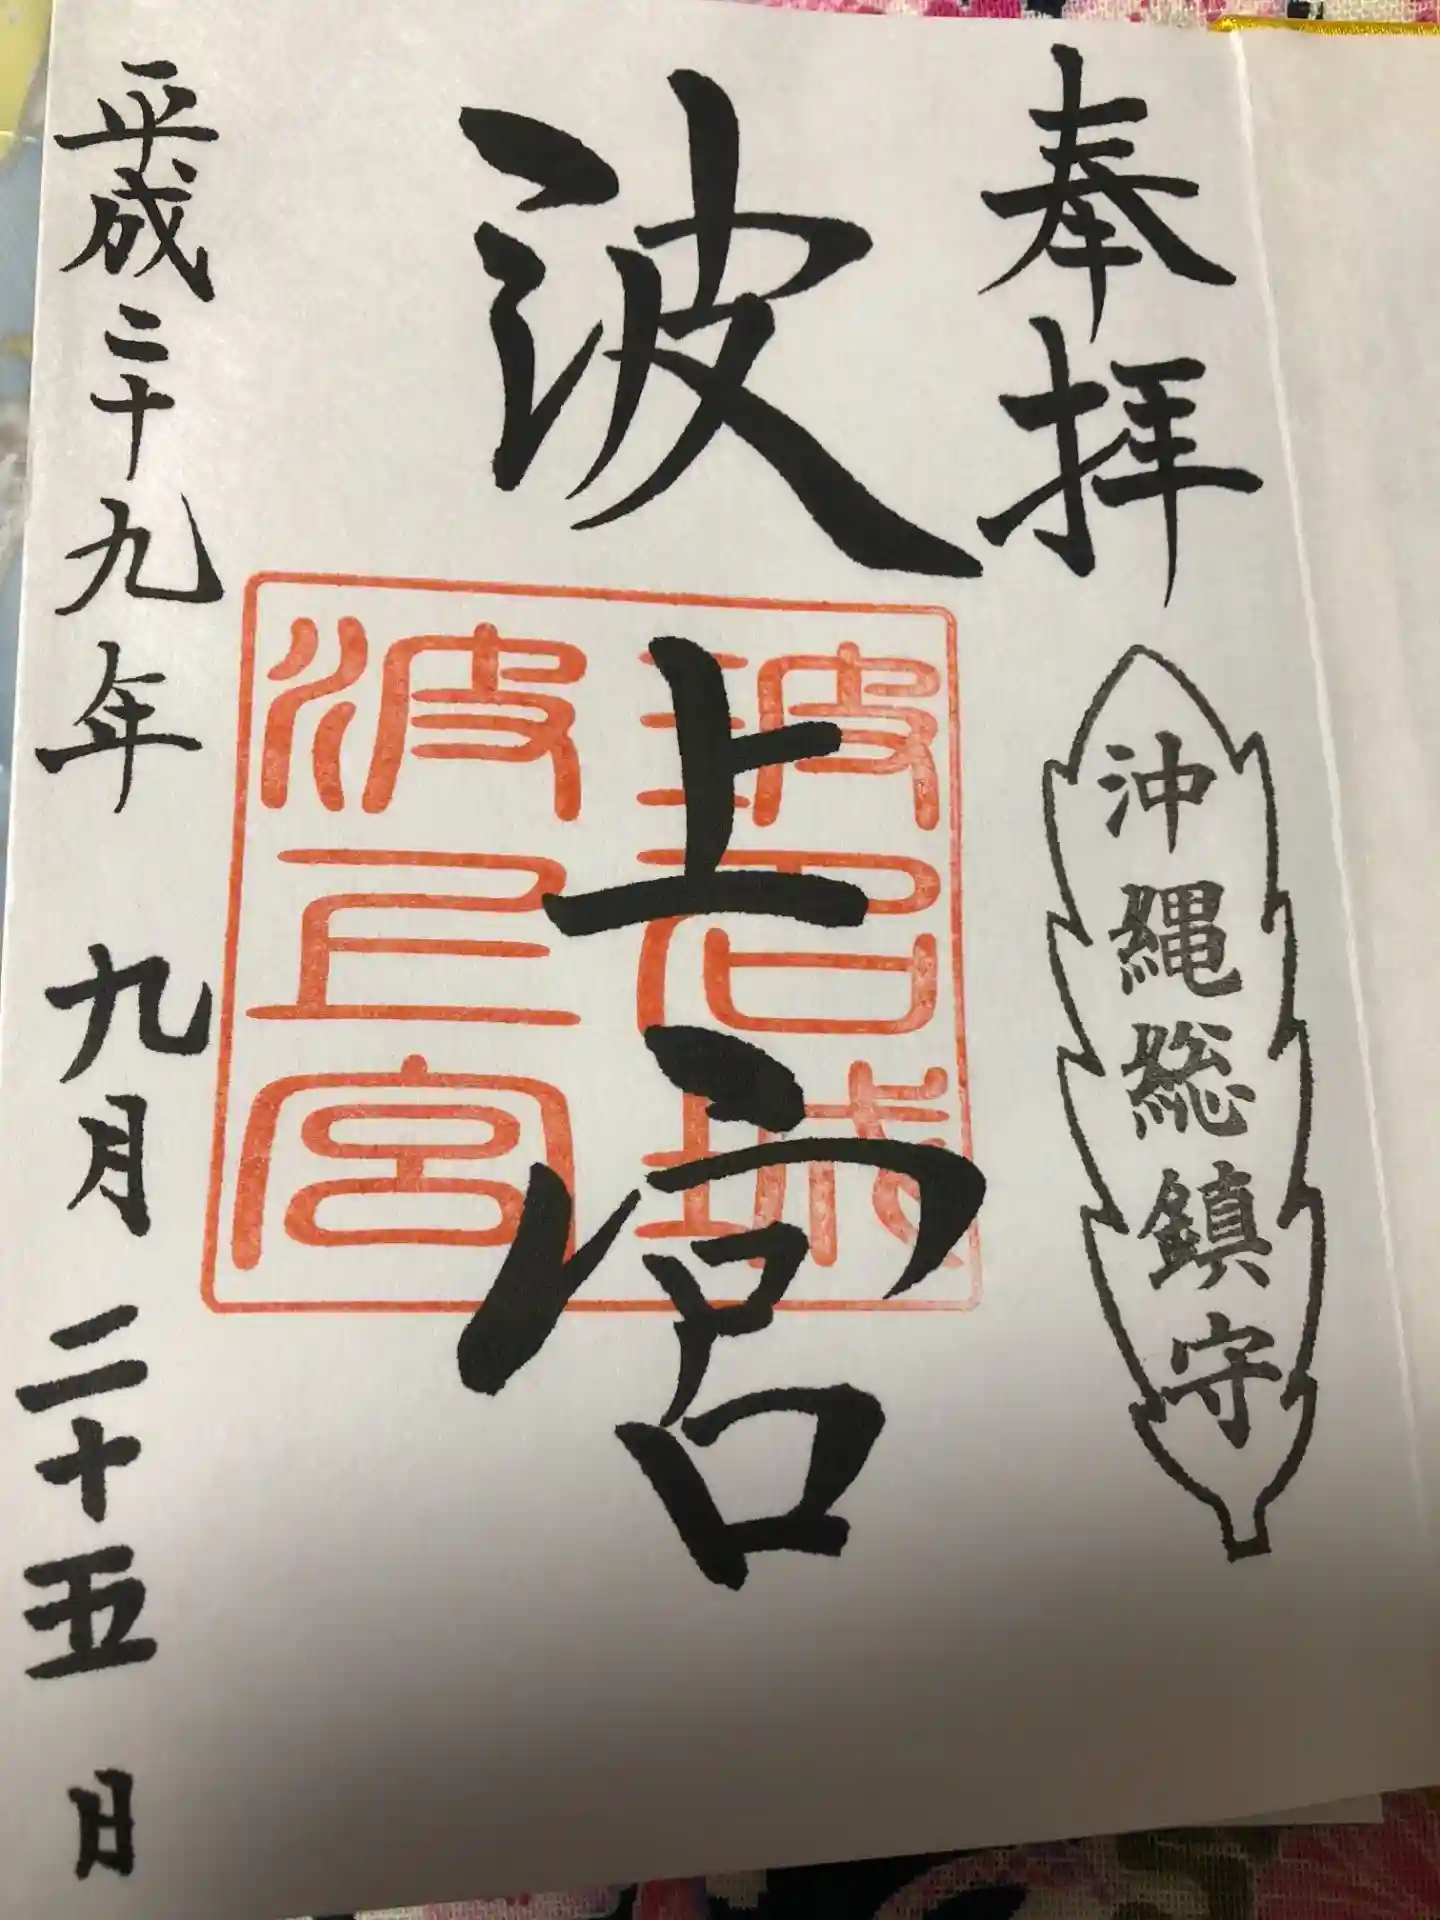 奉拝
沖縄総鎮守
波上宮
波上宮
平成二十九年 九月 二十五日